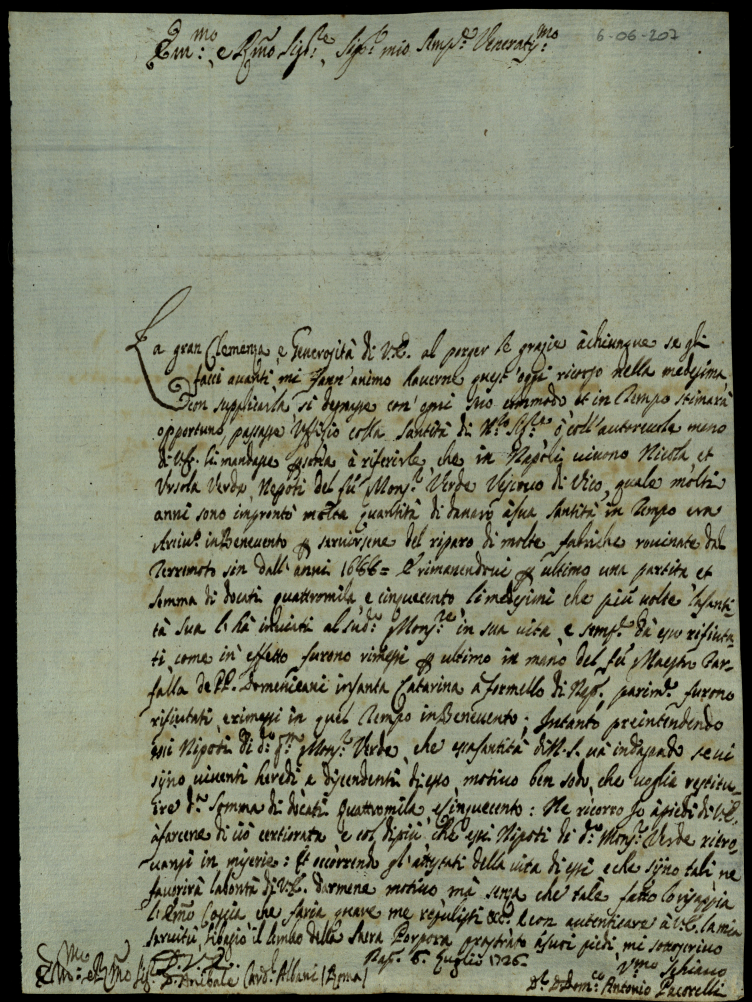 Em:mo e Rmo Sig:re, Sig:re mio Semp:e Venerat:mo
6-06-207
La gran Clemenza, e Generosità di V.E. al porger le grazie à chiunque se gli
facci avanti mi fann' animo haverne quest' oggi ricorso nella medesima
con supplicarla si degnasse con' ogni suo commodo et in tempo stimarà
opportuno, passasse Uffizio colla Santità di N.ro Sig.re ò coll' autorevole mano
di V.E. li mandasse à riferirle, che in Napoli vivono Nicola, et
Ursola Verde Nipoti del fù Mons.r Verde Vescovo di Vico, quale molti
anni sono improntò molta quantità di danaro à sua Santità in tempo era
Arciv.o in Benevento p servirsene del riparo di molte fabriche rovinate dal
Terremoto sin dall' anni 1688= E rimanendovi p ultimo una partita et
somma di docati quattromila e cinquecento li medesimi che più volte la Santi-
tà Sua li hà inviati al sud.o Mons.re in sua vita, e semp.e da esso rifiuta-
ti come in effetto furono rimessi p ultimo in mano del fù Maestro Far-
falla de PP. Domenicani in Santa Catarina a formello di Nap. parim.e furono
rifiutati, e rimessi in quel tempo in Benevento; Intanto, preintendendo
mi Nipoti di d.o Mons.r Verde, che essa Santità di N.S. và indagando se vi
sijno viventi heredi e discendenti di esso, motivo ben sodo, che voglia restitu-
ire d.a Somma di docati quattromila, e cinquecento: Ne ricorro Io à piedi di V.E.
à farcene di ciò certiorata, e col di più che essi Nipoti di d.o Mons.r Verde ritro-
vansi in miserie: Et occorrendo gl' attestati della vita di essi e che sijno tali ne
favorirà la bontà di V.E. darmene motivo mà senza che tale fatto
l'Emo Coscia che saria greave me &c. e con autenticare à V.E. la mia
servitù, bacio il lembo della Sacra Porpora prostrato à suoi piedi mi sottoscrivo
Nap. 6. Luglio 1726
D. V. E.
Em:mo e Rmo Sig. D. Anibale Card. Albani (Roma)
V:mo Schiavo
D.r D. Dom.co Antonio Pacorelli